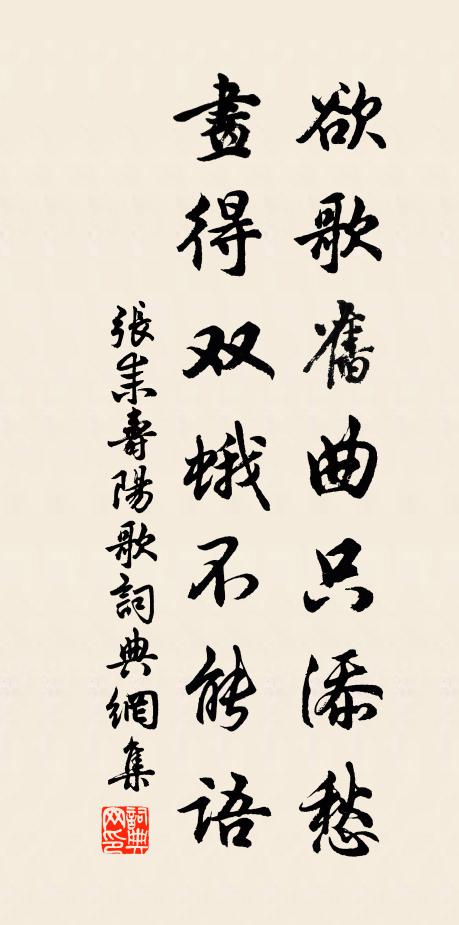 欲歌舊曲只添愁
畫得双蛾不能語
張耒壽陽歌詞典網集
詞典网印